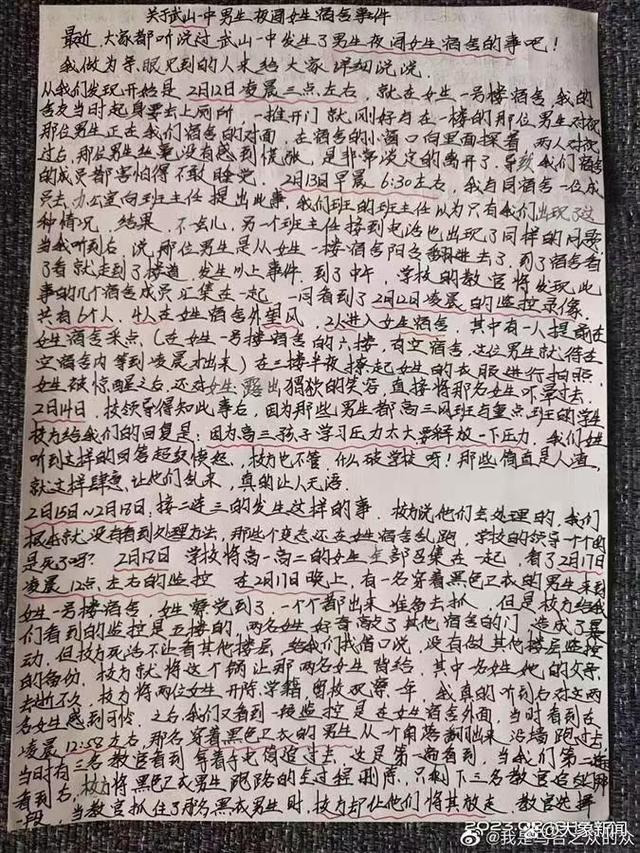 关于武山一中男生夜闯女生宿舍事件
最近,大家都听说过武山一中发生了男生夜闯女生宿舍的事吧!
我做为亲眼见到的人来给大家详细说说.
从我们发现开始是2月12日凌晨三点左右,就在女生一号楼宿舍,我的
舍友当时起身要去上厕所,一推开门就刚好与在一楼的那位男生对视
那位男生正在我们宿舍的对面,在宿舍的小窗口向里面探着,两人对视
过后,那位男生丝毫没有感到慌张,是非常淡定的离开了,导致我们宿舍
的成员都害怕得不敢睡觉. 2月13日早晨6:30左右,我与同宿舍一位成
员去办公室向班主任提出此事,我们班的班主任以为只有我们出现了这
种情况,结果,不一会儿,另一个班主任接到电话也出现了同样的问题
当我听到后,说那位男生是从女生一楼宿舍阳台翻进去了,到了宿舍看
了看就走到了楼道,发生以上事件.到了中午,学校的教官将发现此
事的几个宿舍成员汇集在一起,一同看到了2月12日凌晨的监控录像,
共有6个人,4人在女生宿舍外望风,2人进入女生宿舍,其中有一人提前在
女生宿舍采点(在女生一号楼宿舍的六楼,有空宿舍,这位男生就待在
空宿舍内等到凌晨才出来)在三楼半夜撩起女生的衣服进行拍照,
女生被惊醒之后,还对女生露出猥琐的笑容,直接将那名女生吓晕过去.
2月14日,校领导得知此事后,因为那些男生都高三火班与重点班的学生
校方给我们的回复是:因为高三孩子学习压力太大,要释放一下压力,我们
听到这样的回答超级愤怒,校方也不管,什么破学校呀!那些简直是人渣,
就这样肆意,让他们乱来,真的让人无语.
2月15日~2月17日,接二连三的发生这样的事.校方说他们会处理的,我们
根本就没有看到处理方法,那些变态还在女生宿舍乱跑,学校的领导一个个的
是死了吗? 2月18日 学校将高一高二的女生全部召集在一起,看了2月17日
凌晨12点左右的监控 在2月17日晚上,有一名穿着黑色卫衣的男生来到
女生一号楼宿舍,女生察觉到了,一个个都出来准备去抓,但是校方给我
们看到的监控是五楼的,两名女生好奇敲了其他宿舍的门,造成了暴
动,但校方死活不让看其他楼层,给我们找借口说,没有做其他楼层监控
的备份,校方就将这个锅让那两名女生背给,其中一名女生她的父亲
去逝不久,校方将两位女生开除学籍,留校观察一年,我真的听到后对这两
名女生感到可惜.之后我们又看到一段监控是在女生宿舍外面,当时看到在
凌晨12:58左右,那名穿着黑色卫衣的男生从一个角落翻出来,沿墙跑过去
当时有三名教官看到拿着手电筒追过去,这是第一遍看到,当我们第二遍
看到后,校方将黑色卫衣男生跑路的全过程删除,只剩下三名教官追的那
一段,当教官抓住了那名黑衣男生时,校方却让他们将其放走,教官选择
2023.02 @大象新闻
@我是乌合之众的众